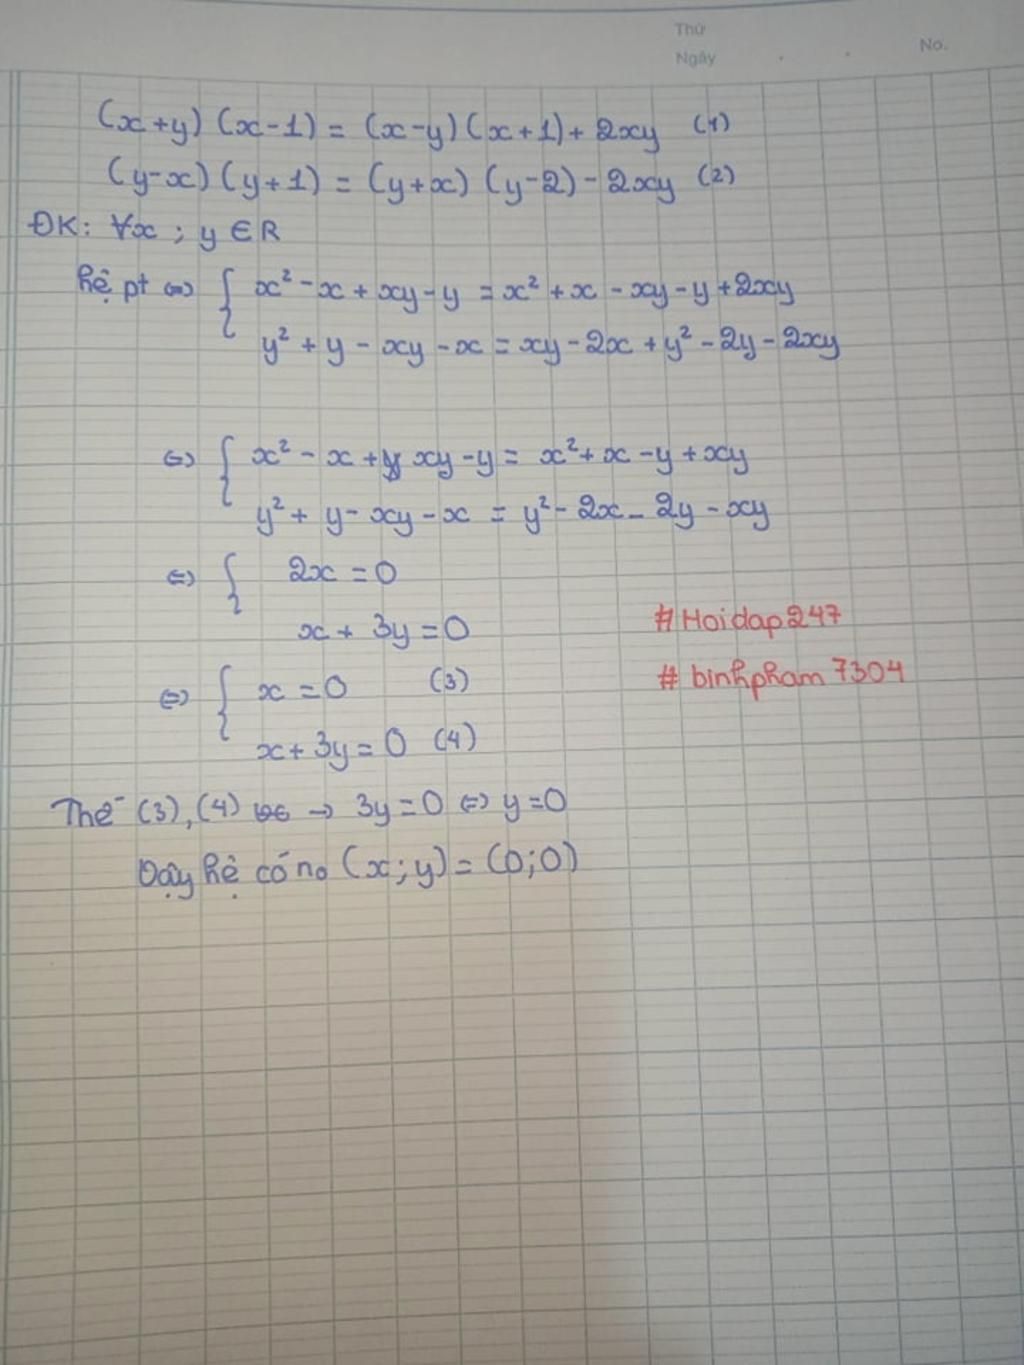 Thứ
Ngày No.
(x+y)(x-1) = (x-y)(x+1) + 2xy (1)
(y-x)(y+1) = (y+x)(y-2) - 2xy (2)
ĐK: ∀x ; y ∈ R
hệ pt ⇔ { x² - x + xy - y = x² + x - xy - y + 2xy
y² + y - xy - x = xy - 2x + y² - 2y - 2xy
⇔ { x² - x + xy - y = x² + x - y + xy
y² + y - xy - x = y² - 2x - 2y - xy
⇔ { 2x = 0
x + 3y = 0
#Hoidap247
⇔ { x = 0 (3)
#binhpham7304
x + 3y = 0 (4)
Thế (3), (4) → 3y = 0 ⇔ y = 0
Vậy hệ có no (x; y) = (0; 0)